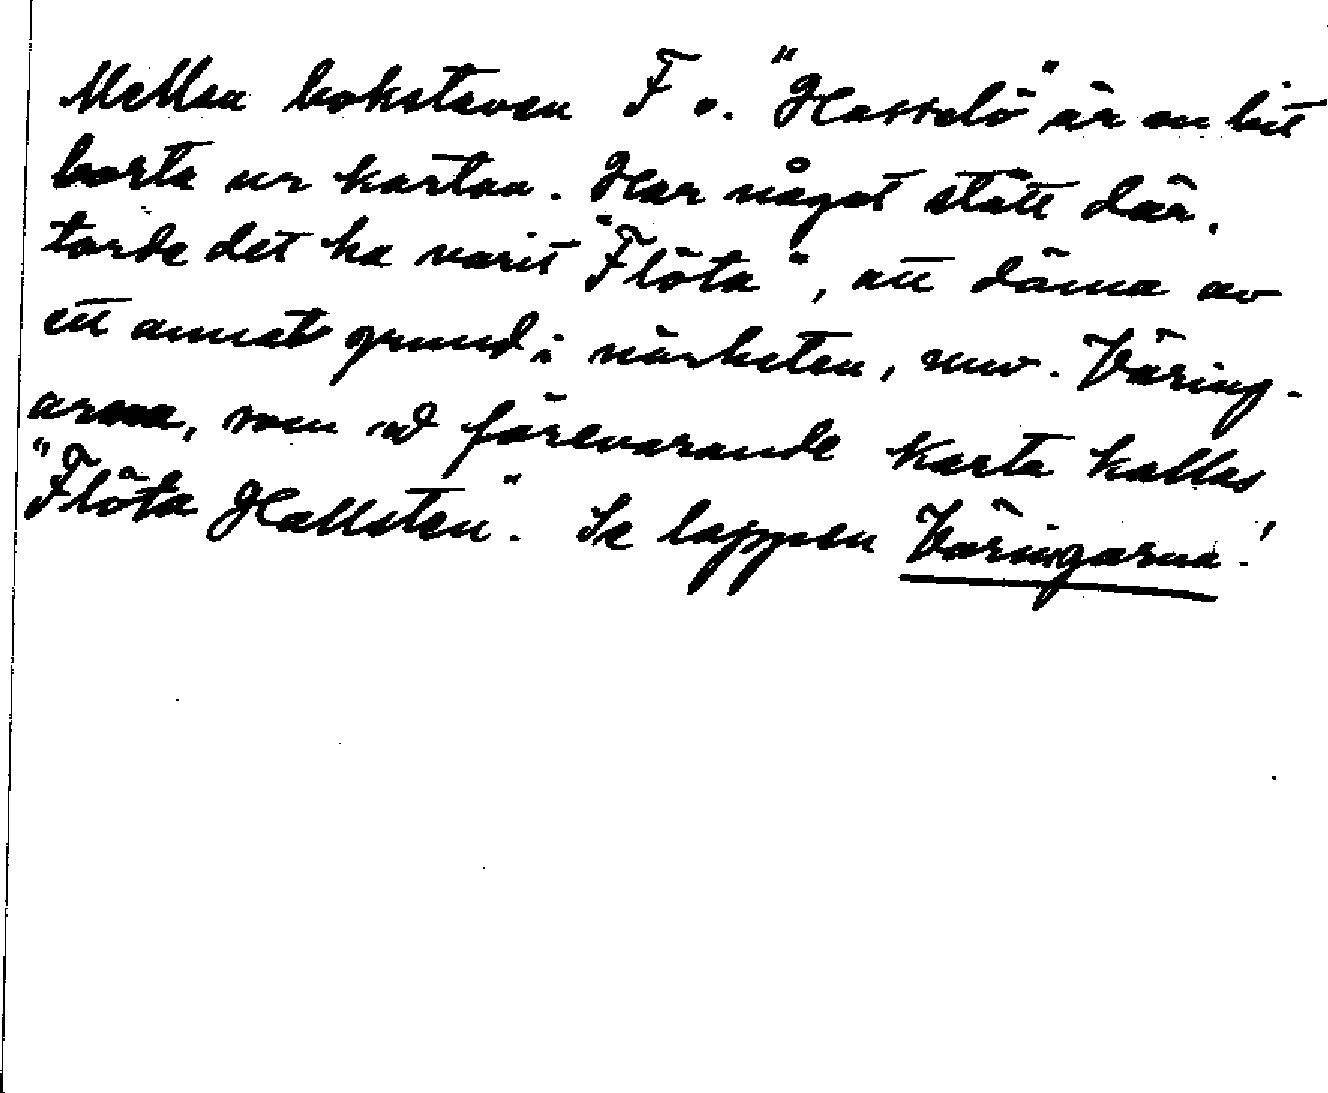 Mellan bokstaven F o. "Hasselö" är en bit
borta ur kartan. Har något stått där,
torde det ha varit "Flöta", att döma av
ett annat grund i närheten, nuv. Väring-
arna, som på förevarande karta kallas
"Flöta Hallsten". Se lappen Väringarna!